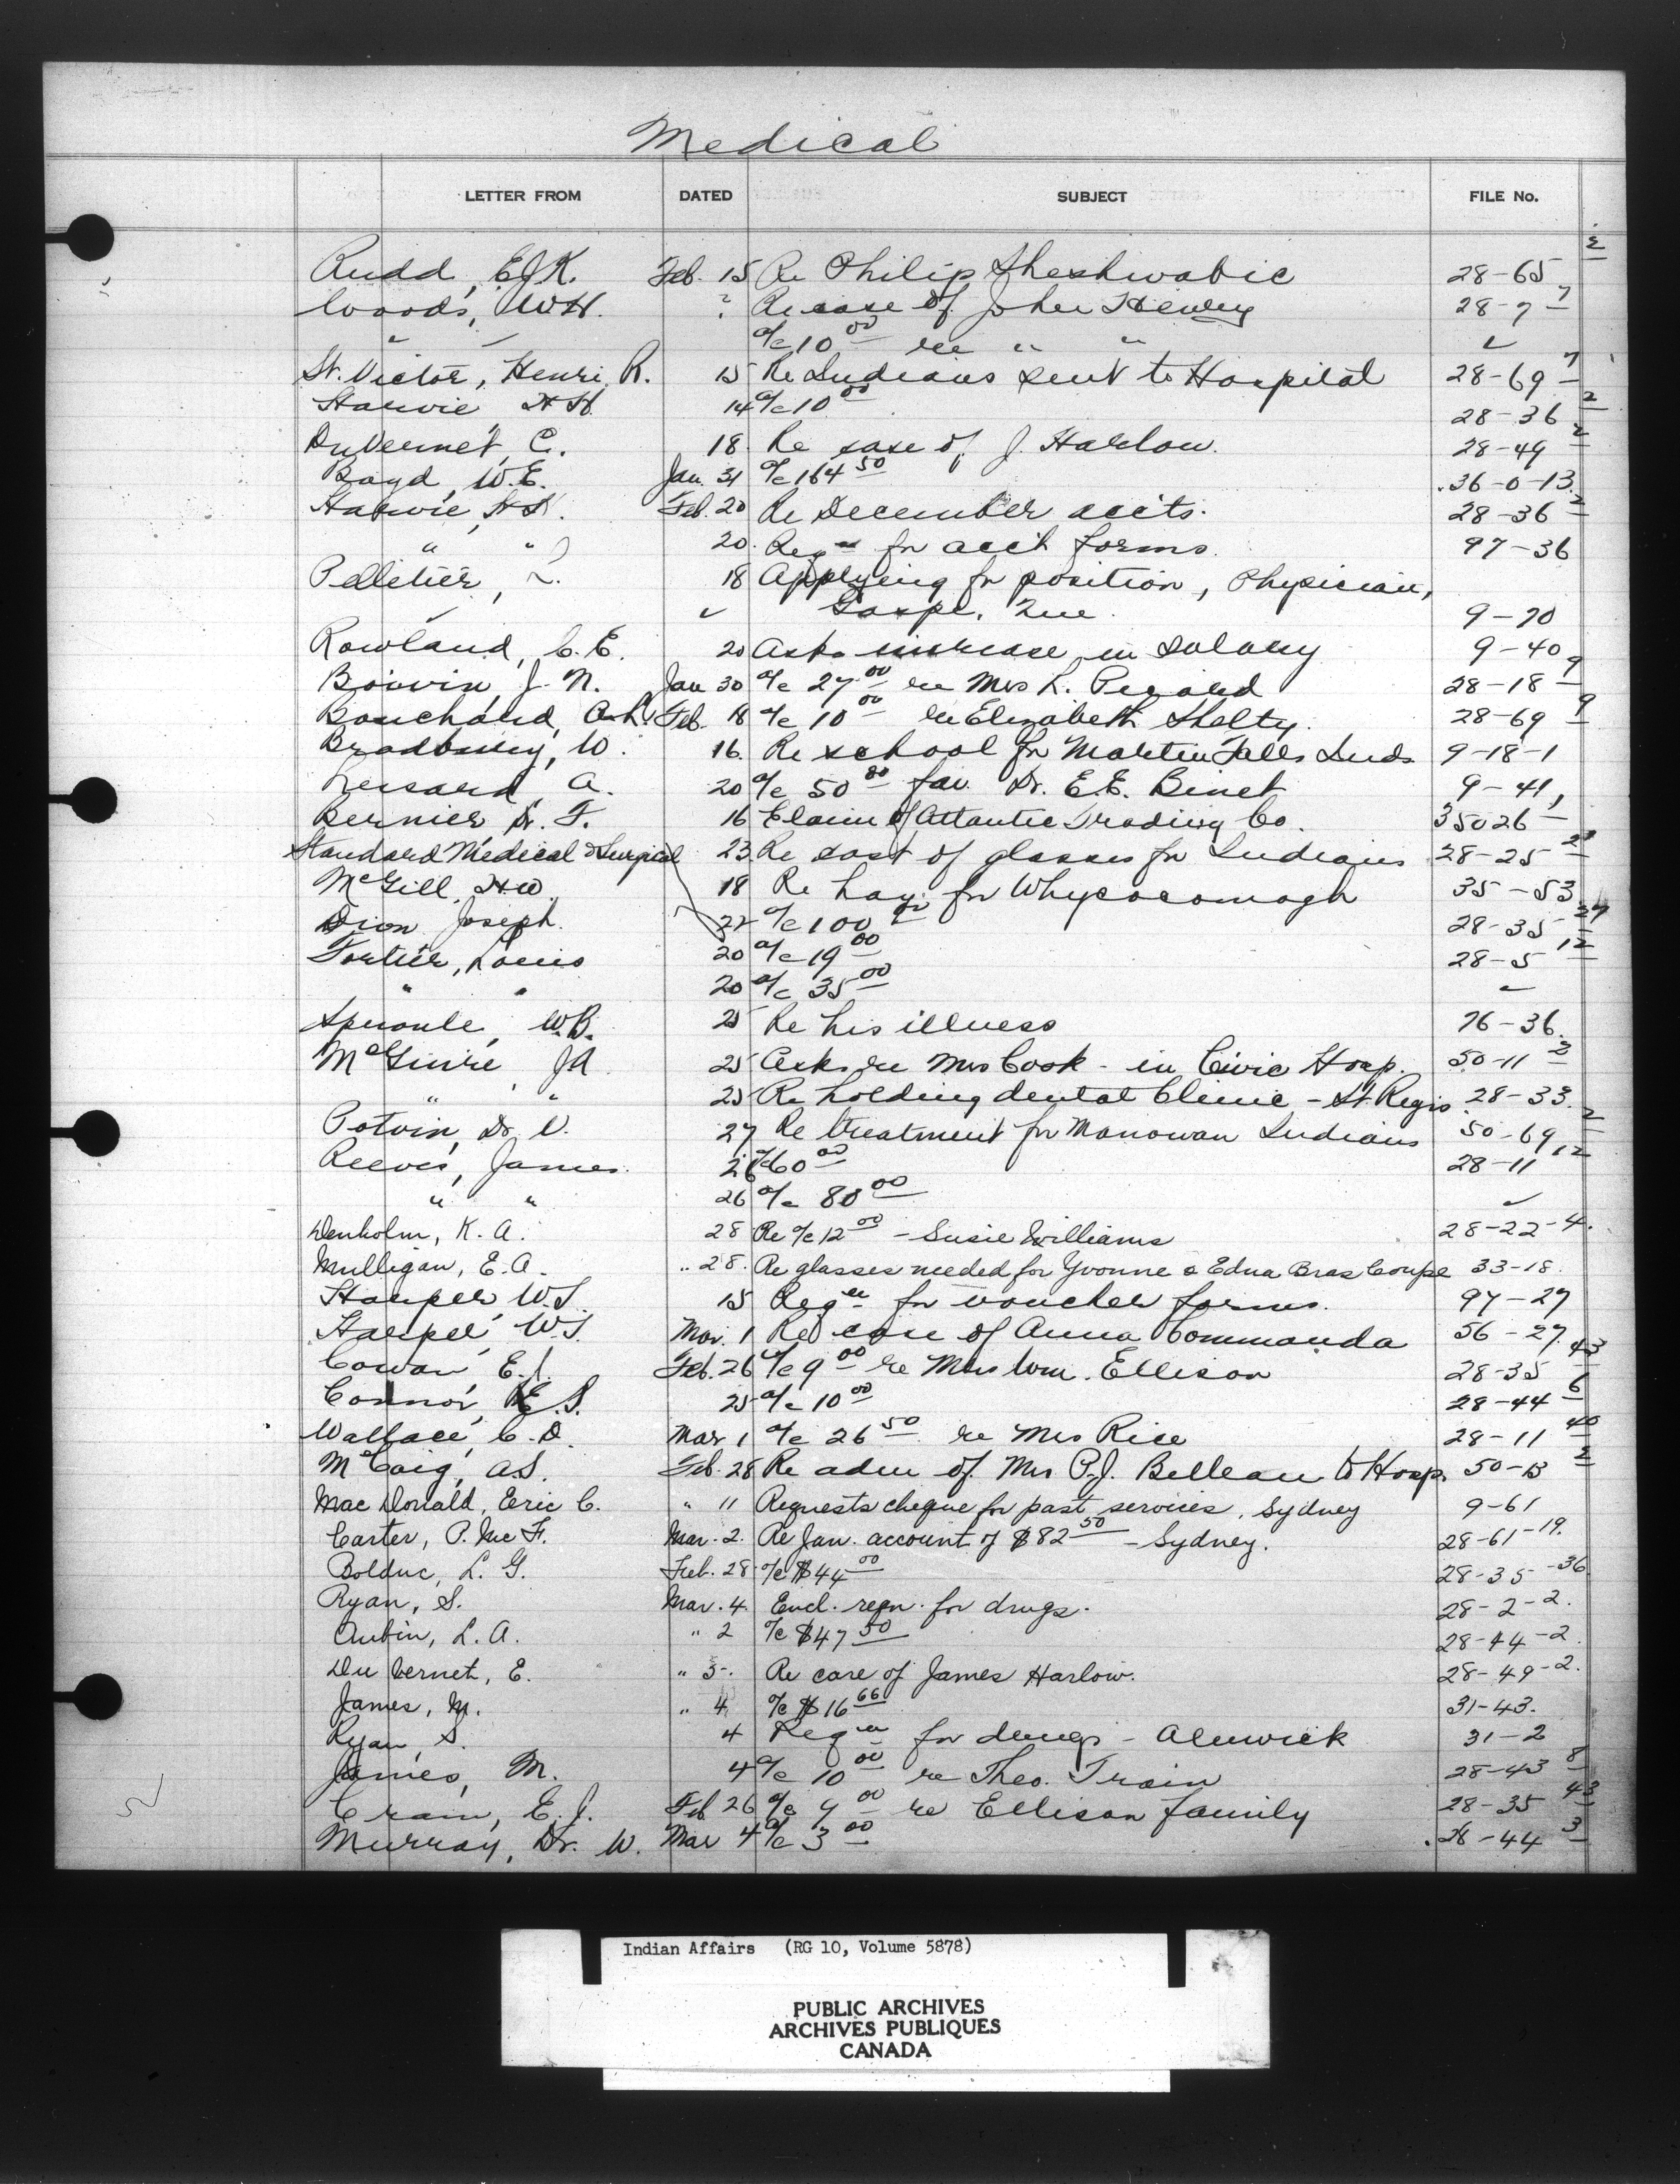 Medical
LETTER FROM DATED SUBJECT FILE No.
Rudd, E.J.K. Feb. 15 Re Philip Sheshwabic 28-65 2
Woods, W.H. ? Re case of John Henry 28-7 7
" " a/c 10 00 re " " ✓
St. Victor, Henri R. 15 Re Indians sent to Hospital 28-69 7
Harvie H.H. 14 a/c 10 00 28-36 2
DuVernet, C. 18. Re case of J. Harlow. 28-49 2
Boyd, W.E. Jan. 31 a/c 164 50 36-0-13
Harvie, H.H. Feb. 20 Re December accts. 28-36 2
" " 20. Reqn for acct forms. 97-36
Pelletier, L. 18 Applying for position, Physician,
✓ ✓ Gaspe, Que. 9-70
Rowland, C.E. 20 Asks increase in salary 9-40
Boivin, J.N. Jan 30 a/c 27 00 re Mrs K. Picard 28-18 9
Bouchard, A.L. Feb. 18 a/c 10 00 re Elizabeth Shelty. 28-69 9
Bradbury, W. 16. Re school for Martin Falls Inds 9-18-1
Lessard, A. 20 a/c 50 00 fav. Dr. E.E. Binet 9-41
Bernier, Dr. F. 16 Claim of Atlantic Trading Co. 35026-1
Standard Medical & Surgical 23 Re cost of glasses for Indians 28-25
McGill, H.W. 18 Re hay for Whycocomagh 35-53
Dion Joseph. 22 a/c 100 00 28-35 27
Fortier, Louis 20 a/c 19 00 28-5 12
" " 20 a/c 35 00 ✓
Sproule, W.B. 25 Re his illness 76-36.
McGuire, J.A. 25 Asks re Mrs Cook - in Civic Hosp. 50-11 2
" " 25 Re holding dental Clinic - St. Regis 28-33.
Potvin, Dr. V. 27 Re treatment for Manowan Indians 50-69 2
Reeves, James. 26 a/c 60 00 28-11 12
" " 26 a/c 80 00 ✓
Denholm, K. A. 28 Re a/c 12 00 - Susie Williams 28-22-4.
Mulligan, E.A. " 28. Re glasses needed for Yvonne & Edna Bras Coupe 33-18.
Harper W.S. 15 Reqn for voucher forms. 97-27
Harper, W.S. Mar. 1 Re case of Anna Commanda 56-27.
Cowan, E.J. Feb. 26 a/c 9 00 re Mrs Wm. Ellison 28-35 43
Connor, E.S. 25 a/c 10 00 28-44 6
Wallace, C.D. Mar 1 a/c 26 50 re Mrs Rice 28-11 40
McCaig, A.S. Feb. 28 Re adm of Mrs P.J. Belleau to Hosp. 50-13 2
Mac Donald, Eric C. " 11 Requests cheque for past services, Sydney 9-61
Carter, P. McF. Mar. 2. Re Jan. account of $82 50 - Sydney. 28-61-19.
Bolduc, L. G. Feb. 28 a/c $44 00 28-35-36
Ryan, S. Mar. 4 Encl. reqn. for drugs. 28-2-2.
Aubin, L. A. " 2 a/c $47 50 28-44-2.
Du Vernet, E. " 5. Re care of James Harlow. 28-49-2.
James, M. " 4 a/c $16 66 31-43.
Ryan, S. 4 Reqn for drugs - Alnwick 31-2
James, M. 4 a/c 10 00 re Theo. Train 28-43 8
Crain, E.J. Feb 26 a/c 9 00 re Ellison family 28-35 43
Murray, Dr. W. Mar 4 a/c 3 00 28-44 3
Indian Affairs (RG 10, Volume 5878)
PUBLIC ARCHIVES
ARCHIVES PUBLIQUES
CANADA